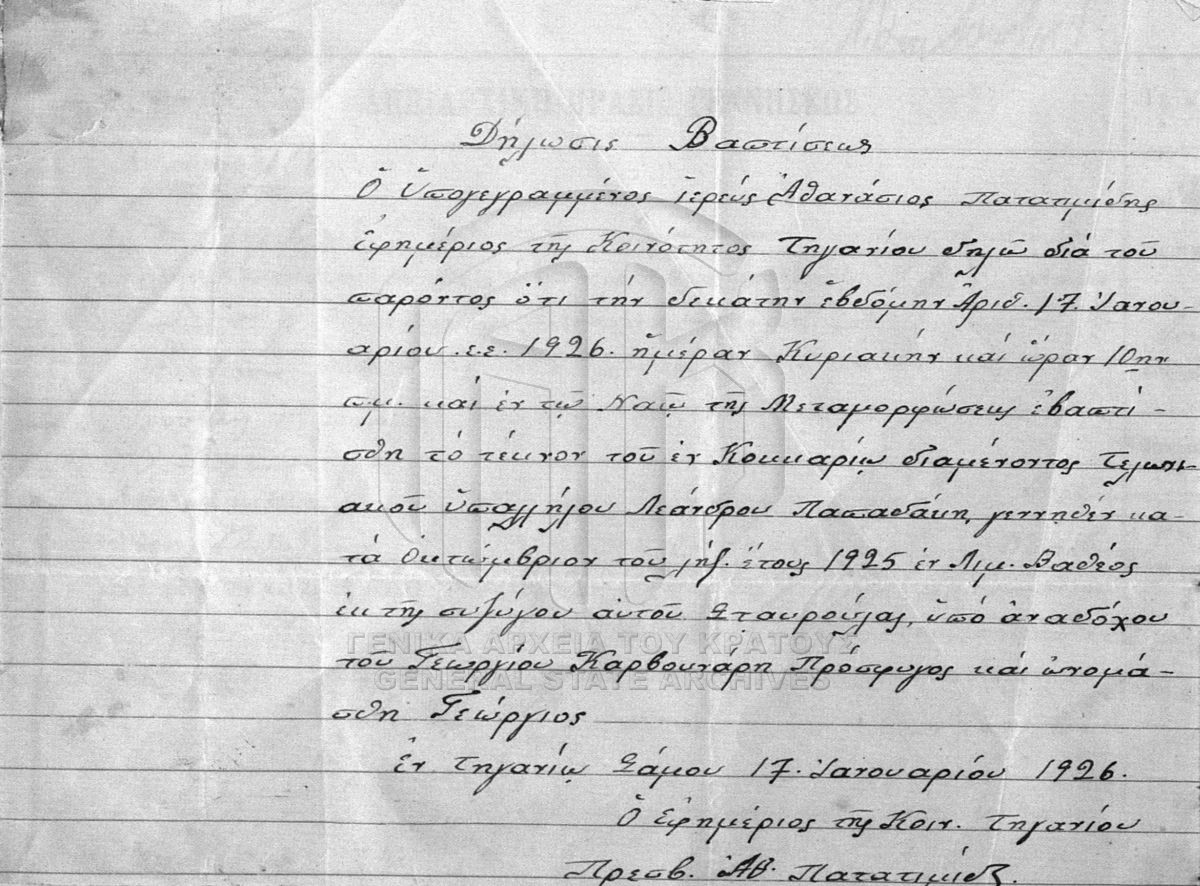 Δήλωσις Βαπτίσεως
Ὁ Ὑπογεγραμμένος ἱερεύς Ἀθανάσιος Πατατιμίδης
ἐφημέριος τῆς Κοινότητος Τηγανίου δηλῶ διά τοῦ
παρόντος ὅτι τήν δεκάτην ἑβδόμην Ἀριθ. 17. Ἰανου-
αρίου. ε.ε. 1926. ἡμέραν Κυριακήν καί ὥραν 10ην
π.μ. καί ἐν τῷ Ναῷ τῆς Μεταμορφώσεως ἐβαπτί-
σθη τό τέκνον τοῦ ἐν Κοκκαρίῳ διαμένοντος Τελωνι-
ακοῦ ὑπαλλήλου Λεάνδρου Παπαδάκη, γεννηθέν κα-
τά Ὀκτώμβριον τοῦ λήξ. ἔτους 1925 ἐν Λιμ. Βαθέος
ἐκ τῆς συζύγου αὐτοῦ Σταυρούλας, ὑπό ἀναδόχου
τοῦ Γεωργίου Καρβουνάρη Πρόσφυγος καί ὠνομά-
σθη Γεώργιος
ἐν Τηγανίῳ Σάμου 17. Ἰανουαρίου 1926.
Ὁ Ἐφημέριος τῆς Κοιν. Τηγανίου
Πρεσβ. Ἀθ. Πατατιμίδης
ΓΕΝΙΚΑ ΑΡΧΕΙΑ ΤΟΥ ΚΡΑΤΟΥΣ
GENERAL STATE ARCHIVES